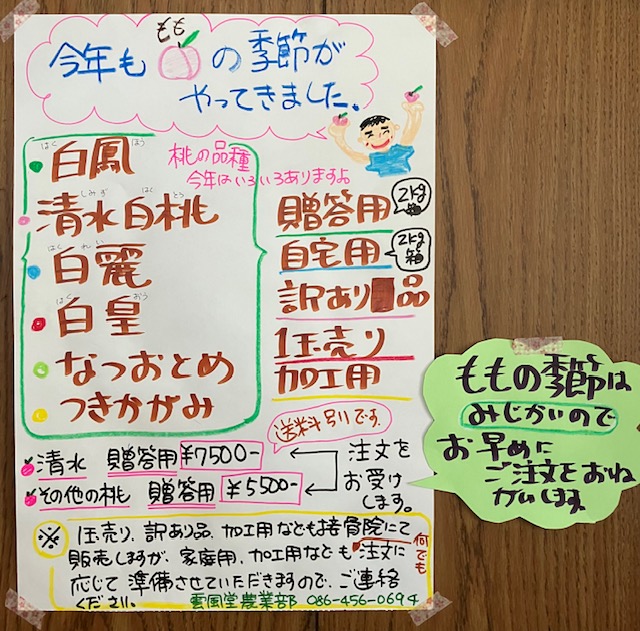 今年も もも の季節が
やってきました。
桃の品種
今年はいろいろありますよ
白鳳 はくほう
清水白桃 しみずはくとう
白麗 はくれい
白皇 はくおう
なつおとめ
つきかがみ
贈答用 2kg箱
自宅用 2kg箱
訳あり品
1玉売り
加工用
送料別です。
清水 贈答用 ¥7500-
その他の桃 贈答用 ¥5500-
注文を
お受け
します。
※ 1玉売り、訳あり品、加工用なども接骨院にて
販売しますが、家庭用、加工用なども何でも注文に
応じて準備させていただきますので、ご連絡
ください。 雲風堂農業部 086-456-0694
ももの季節は
みじかいので
お早めに
ご注文をおね
がいします